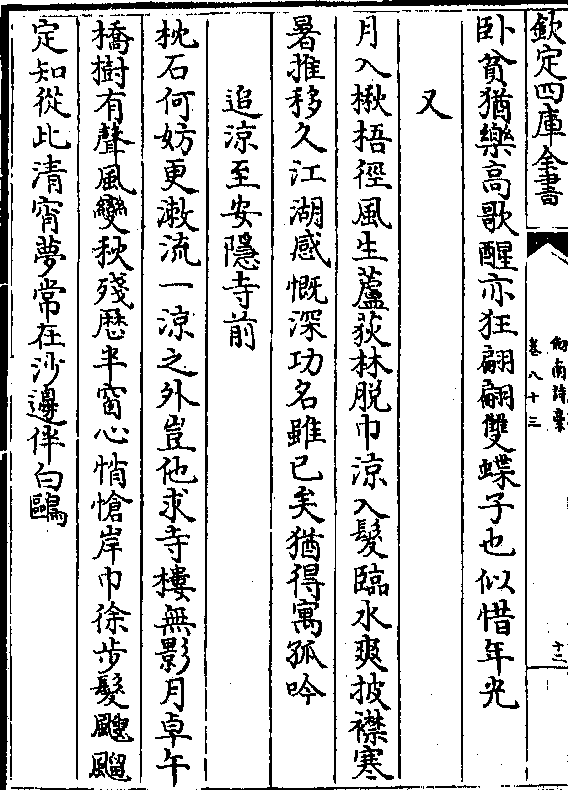 欽定四庫全書
劍南詩稾
卷八十三
十二
卧貧猶樂高歌醒亦狂翩翩雙蝶子也似惜年光
又
月入楸梧徑風生蘆荻林脱巾涼入髮臨水爽披襟寒
暑推移久江湖感慨深功名雖已矣猶得寓孤吟
追涼至安隱寺前
枕石何妨更漱流一涼之外豈他求寺樓無影月卓午
橋樹有聲風變秋殘厯半窗心悄愴岸巾徐步髮颼飀
定知從此清宵夢常在沙邊伴白鷗